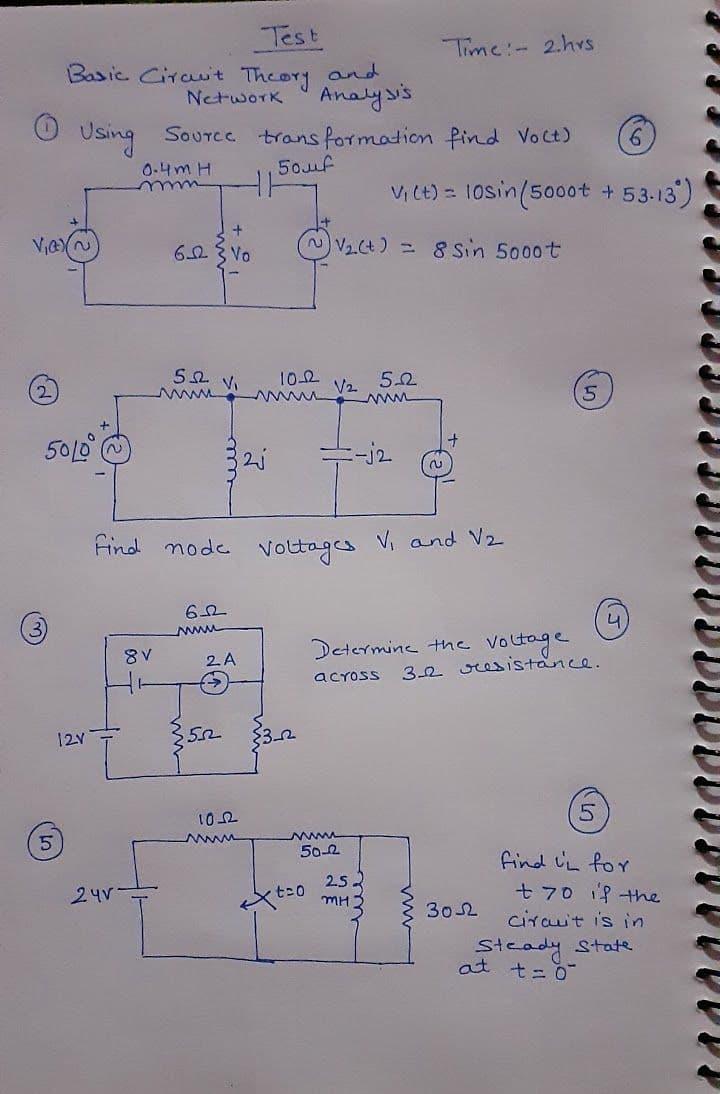 Test
Time:- 2hrs
Basic Circuit Theory and
Network Analysis
① Using Source transformation find Vo(t) ⑥
0.4mH
50uf
V₁(t) = 10sin(5000t + 53.13°)
+
V₁(t)
-
6Ω
+
Vo
-
+
-
V₂(t) = 8 Sin 5000t
②
5Ω V₁ 10Ω V₂ 5Ω
⑤
+
50∠0°
-
2j
-j2
+
-
Find node voltages V₁ and V₂
③
6Ω
④
8V
2A
Determine the voltage
across 3Ω resistance.
12V
5Ω
3Ω
⑤
10Ω
50Ω
⑤
24V
t=0
25
mH
30Ω
find iL for
t70 if the
circuit is in
steady state
at t=0⁻